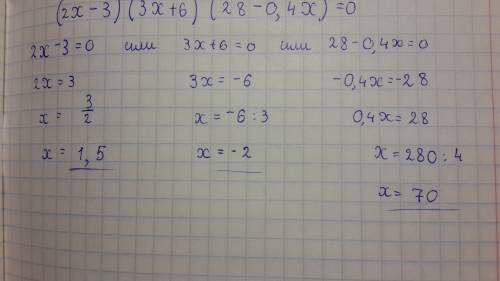 (2x-3)(3x+6)(28-0,4x)=0
2x-3=0 или 3x+6=0 или 28-0,4x=0
2x=3 3x=-6 -0,4x=-28
x= 3/2 x=-6:3 0,4x=28
x= 1,5 x=-2 x=280:4
x= 70